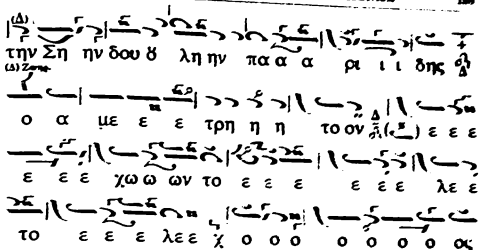 την Ση ην δου ȣ λη ην πα α α ρι ι ι δης
ο α με ε ε τρη η η το ον (ε) ε ε ε
ε ε ε χω ω ων το ε ε ε ε ε ε λε ε
το ε ε ε λε ε χ ο ο ο ο ο ο ο ος